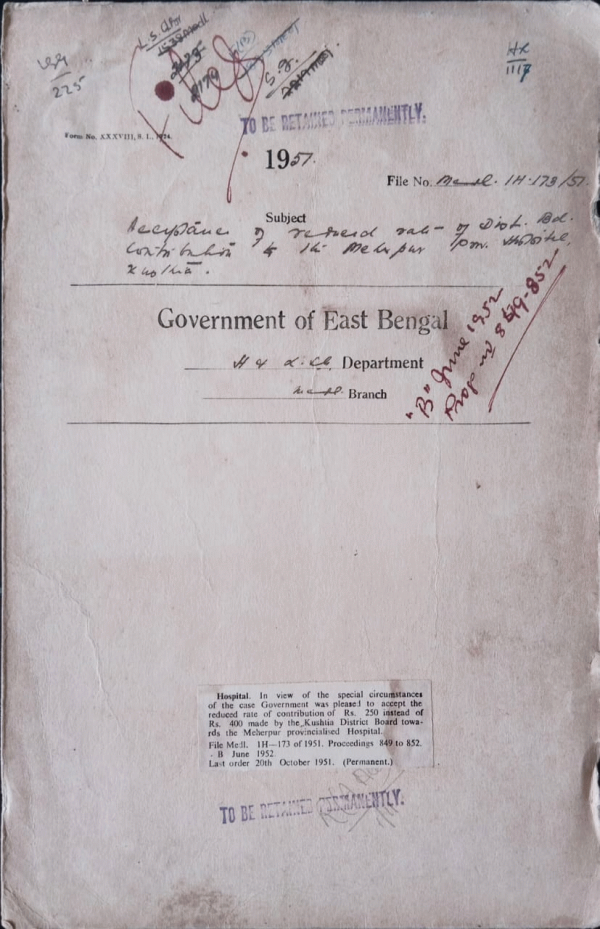 225
1117
TO BE RETAINED PERMANENTLY.
Form No. XXXVIII, S. I., 1924.
1951.
File No. Medl. 1H-173/51
Subject
Acceptance of reduced rate of Dist. Bd.
Contribution to the Meherpur Prov. Hospital,
Kushtia.
Government of East Bengal
H & L.S.G. Department
Medl. Branch
"B" June 1952
Prog. no 849-852
Hospital. In view of the special circumstances
of the case Government was pleased to accept the
reduced rate of contribution of Rs. 250 instead of
Rs. 400 made by the Kushtia District Board towa-
rds the Meherpur provincialised Hospital.
File Medl. 1H—173 of 1951. Proceedings 849 to 852.
- B June 1952.
Last order 20th October 1951. (Permanent.)
TO BE RETAINED PERMANENTLY.